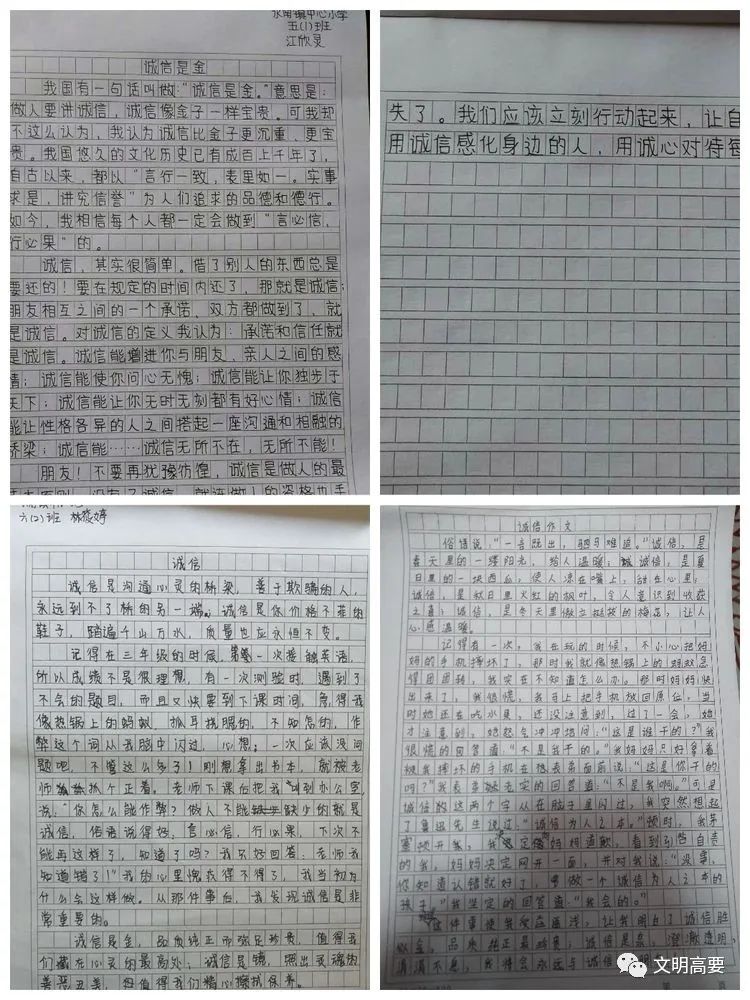 永南镇中心小学
五(1)班
江欣灵
诚信是金
我国有一句话叫做:“诚信是金。”意思是:
做人要讲诚信,诚信像金子一样宝贵。可我却
不这么认为,我认为诚信比金子更沉重、更宝
贵。我国悠久的文化历史已有成百上千年了,
自古以来,都以“言行一致,表里如一。实事
求是,讲究信誉”为人们追求的品德和德行。
如今,我相信每个人都一定会做到“言必信,
行必果”的。
诚信,其实很简单。借了别人的东西总是
要还的!要在规定的时间内还了,那就是诚信;
朋友相互之间的一个承诺、双方都做到了,就
是诚信。对诚信的定义我认为:承诺和信任就
是诚信。诚信能增进你与朋友、亲人之间的感
情;诚信能使你问心无愧;诚信能让你独步于
天下;诚信能让你无时无刻都有好心情;诚信
能让性格各异的人之间搭起一座沟通和相融的
桥梁;诚信能……诚信无所不在,无所不能!
朋友!不要再犹豫彷徨,诚信是做人的最
失了。我们应该立刻行动起来,让自
用诚信感化身边的人,用诚心对待每
六(2)班 林筱婷
诚信
诚信是沟通心灵的桥梁,善于欺骗的人,
永远到不了桥的另一端。诚信是你价格不菲的
鞋子,踏遍千山万水,质量也应永恒不变。
记得在三年级的时候,第一次接触英语,
所以成绩不是很理想,有一次测验时,遇到了
不会的题目,而且又快要到下课时间,急得我
像热锅上的蚂蚁,抓耳挠腮的,不知怎的,作
弊这个词从我脑中闪过,心想:一次应该没问
题吧,不管这么多了!刚想拿出书本,就被老
师抓个正着。老师下课后把我叫到办公室
说:“你怎么能作弊?做人不能缺少的就是
诚信,俗语说得好,言必信,行必果,下次不
能再这样了,知道了吗?我只好回答:老师我
知道错了!”我的心里愧疚得不得了,我当初为
什么会这样做。从那件事后,我发现诚信是非
常重要的。
诚信是金,品质纯正而弥足珍贵,值得我
们藏在心灵的最高处;诚信是镜,照出灵魂的
美恶丑善,但值得我们精心擦拭保养。
诚信作文
俗话说:“一言既出,驷马难追。”诚信,是
春天里的一缕阳光,给人温暖;诚信,是夏
日里的一块西瓜,使人凉在嘴上,甜在心里;
诚信,是秋日里火红的枫叶,令人意识到收获
之喜;诚信,是冬天里傲立挺拔的梅花,让人
心感温暖。
记得有一次,我在玩的时候,不小心把妈
妈的手机摔坏了,那时我就像热锅上的蚂蚁急
得团团转,我实在不知道怎么办。那时妈妈快
出来了,我很慌,我马上把手机放回原位,当
时她还在吃水果,还没注意到,过了一会,她
才注意到,她怒气冲冲地问:“这是谁干的?”我
很慌的回答道:“不是我干的。”我妈妈只好拿着
被我摔坏的手机在我表弟面前说:“这是你干的
吗?”我表弟无实的回答道:“不是我啊。”可是
诚信的这两个字从在脑子里闪过,我突然想起
了鲁迅先生说过:“诚信为人之本。”顿时,我茅
塞顿开我,我决定向妈妈道歉,看到引咎自责
的我,妈妈决定网开一面,并对我说:“没事,
你知道认错就好了,要做一个诚信为人之本的
孩子。”我坚定的回答道:“我会的。”
这件事使我受益匪浅,让我明白了诚信胜
似金,品质纯正最珍贵;诚信是泉,澄澈透明,
涓涓不息,我将会永远与诚信
文明高要